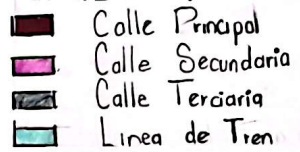 Calle Principal
Calle Secundaria
Calle Terciaria
Linea de Tren